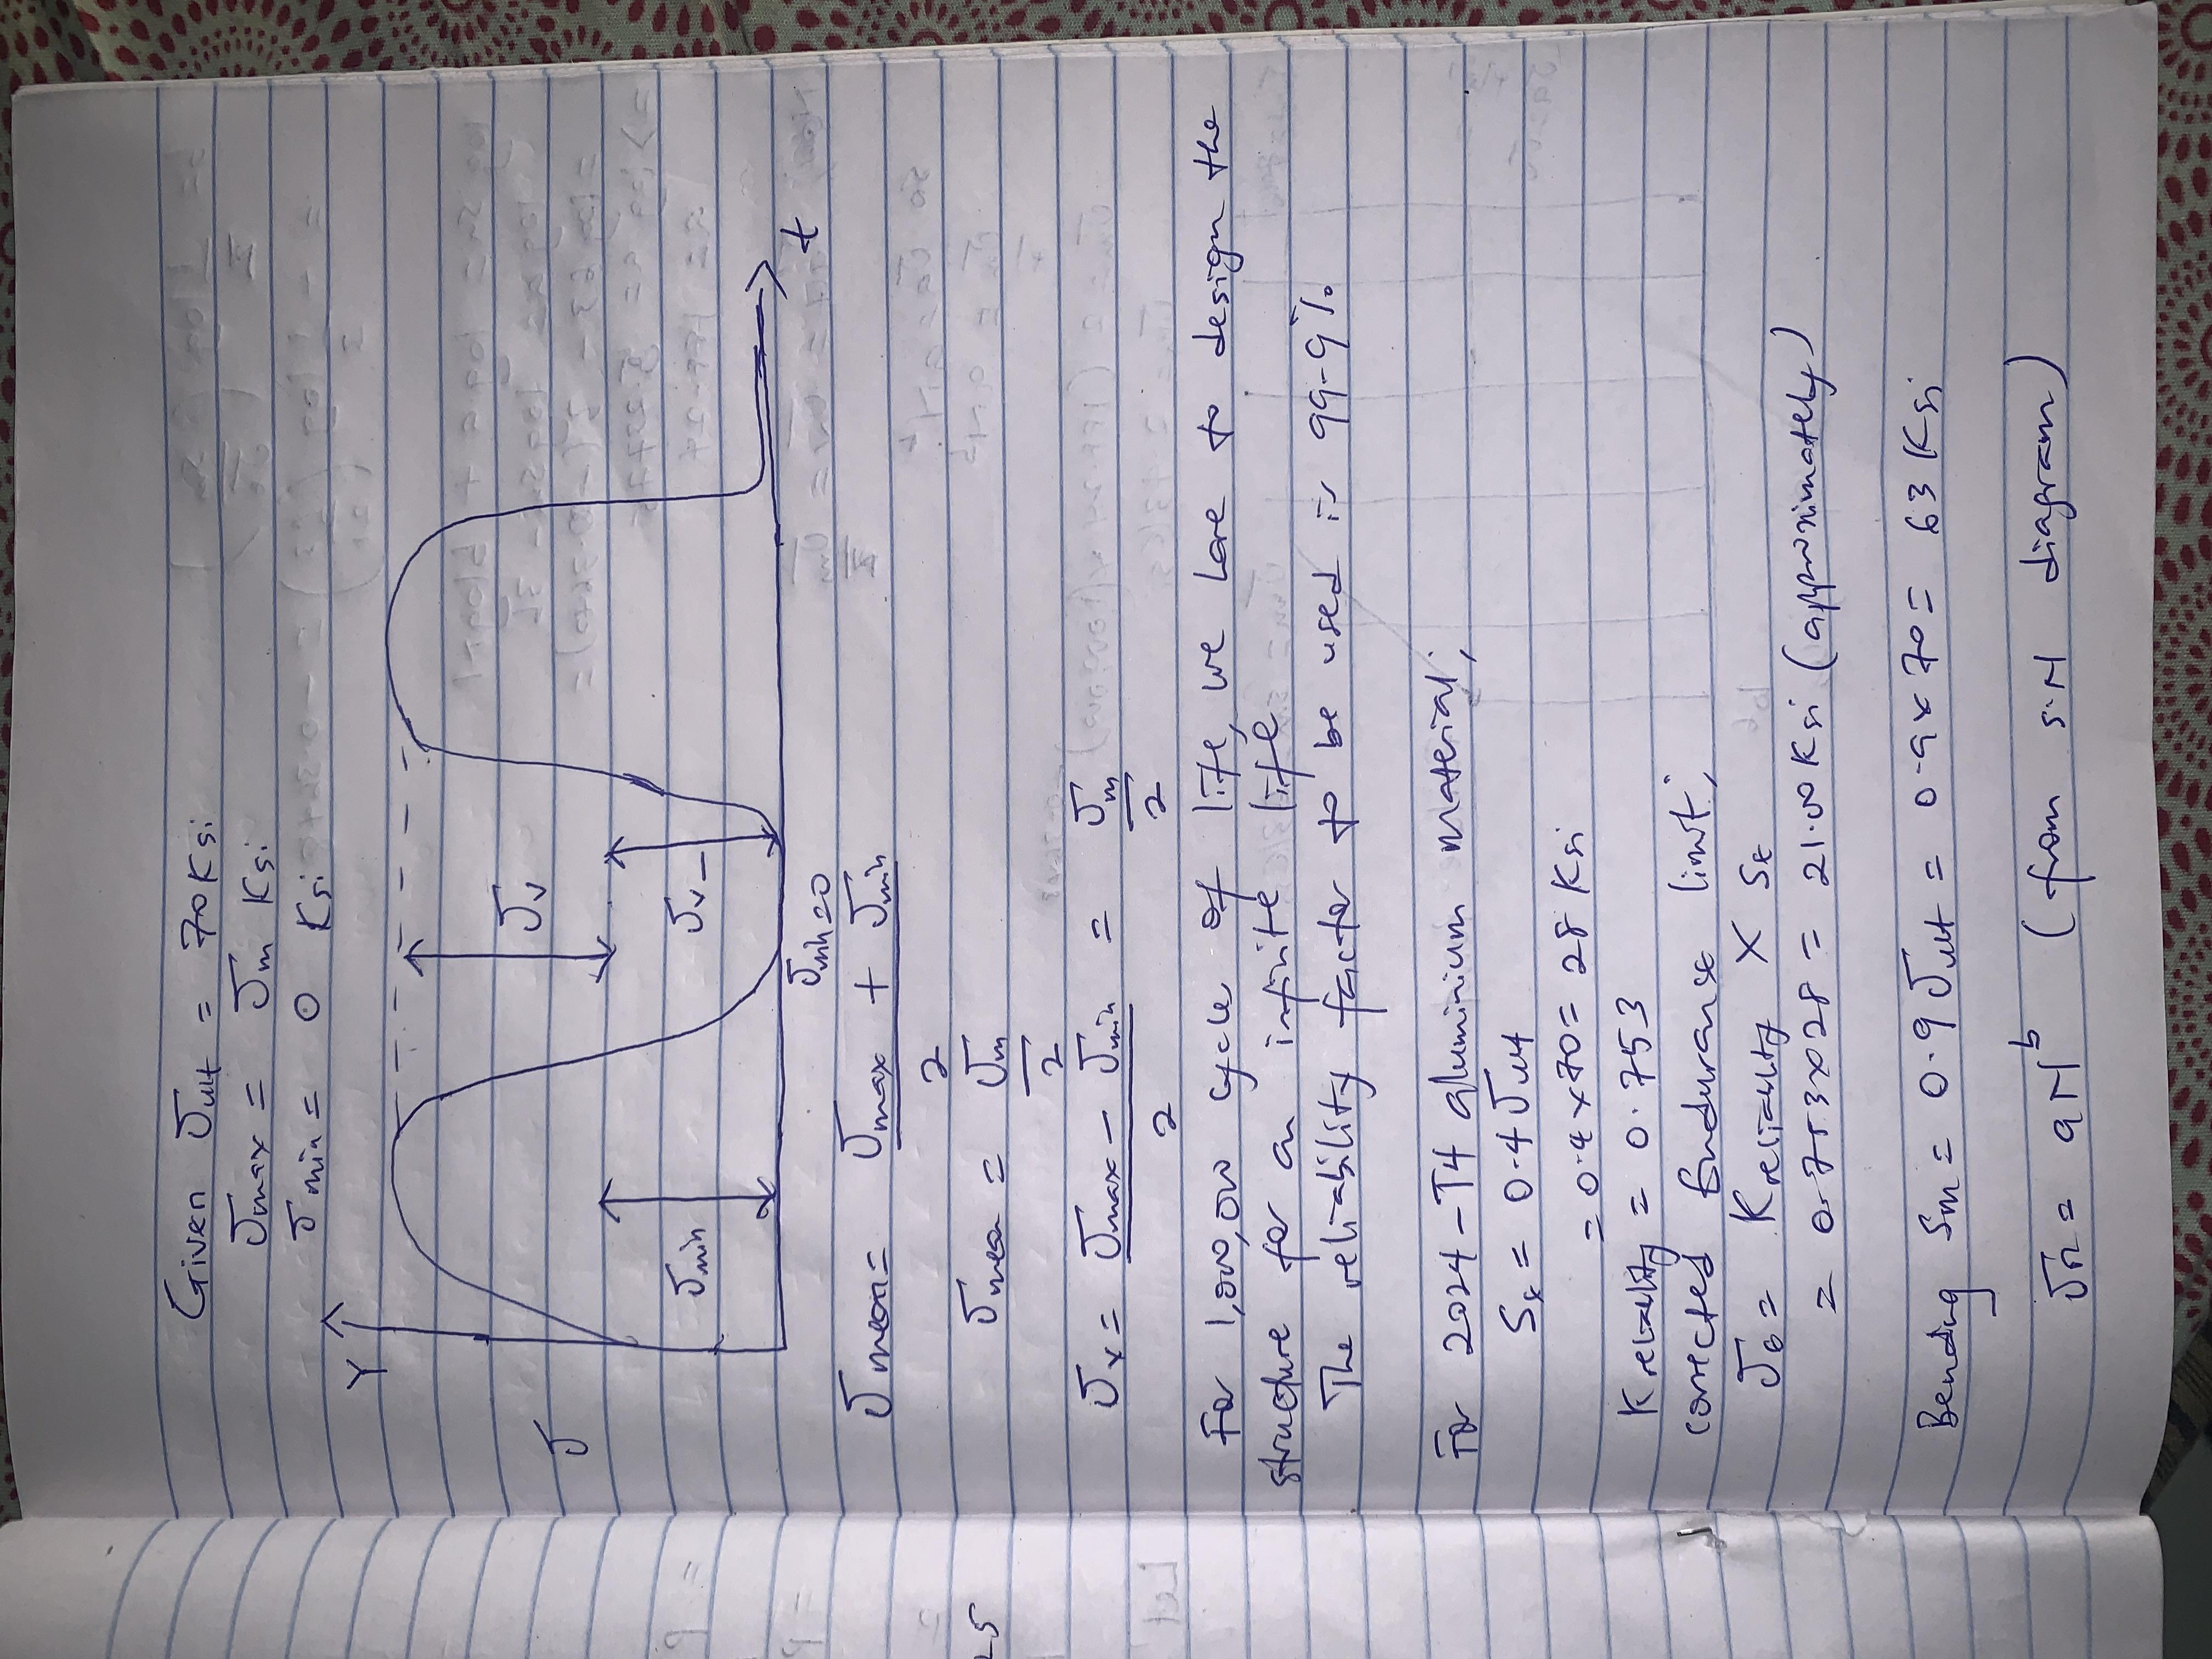 Given σult = 70 Ksi
σmax = σm Ksi
σmin = 0 Ksi
Y
σ
σv
σv
σmin
σmin=0
t
σmean = σmax + σmin / 2
σmean = σm / 2
σv = σmax - σmin / 2 = σm / 2
For 1,000,000 cycle of life, we have to design the
structure for an infinite life
The reliability factor to be used is 99.9%.
For 2024-T4 aluminium material;
Se = 0.4 σult
= 0.4 x 70 = 28 Ksi
K reliability = 0.753
corrected Enduranse limit;
σe = K reliability x Se
= 0.753 x 028 = 21.00 Ksi (approximately)
Bending Sm = 0.9 σult = 0.9 x 70 = 63 Ksi
σn = aN^b (from s.N diagram)